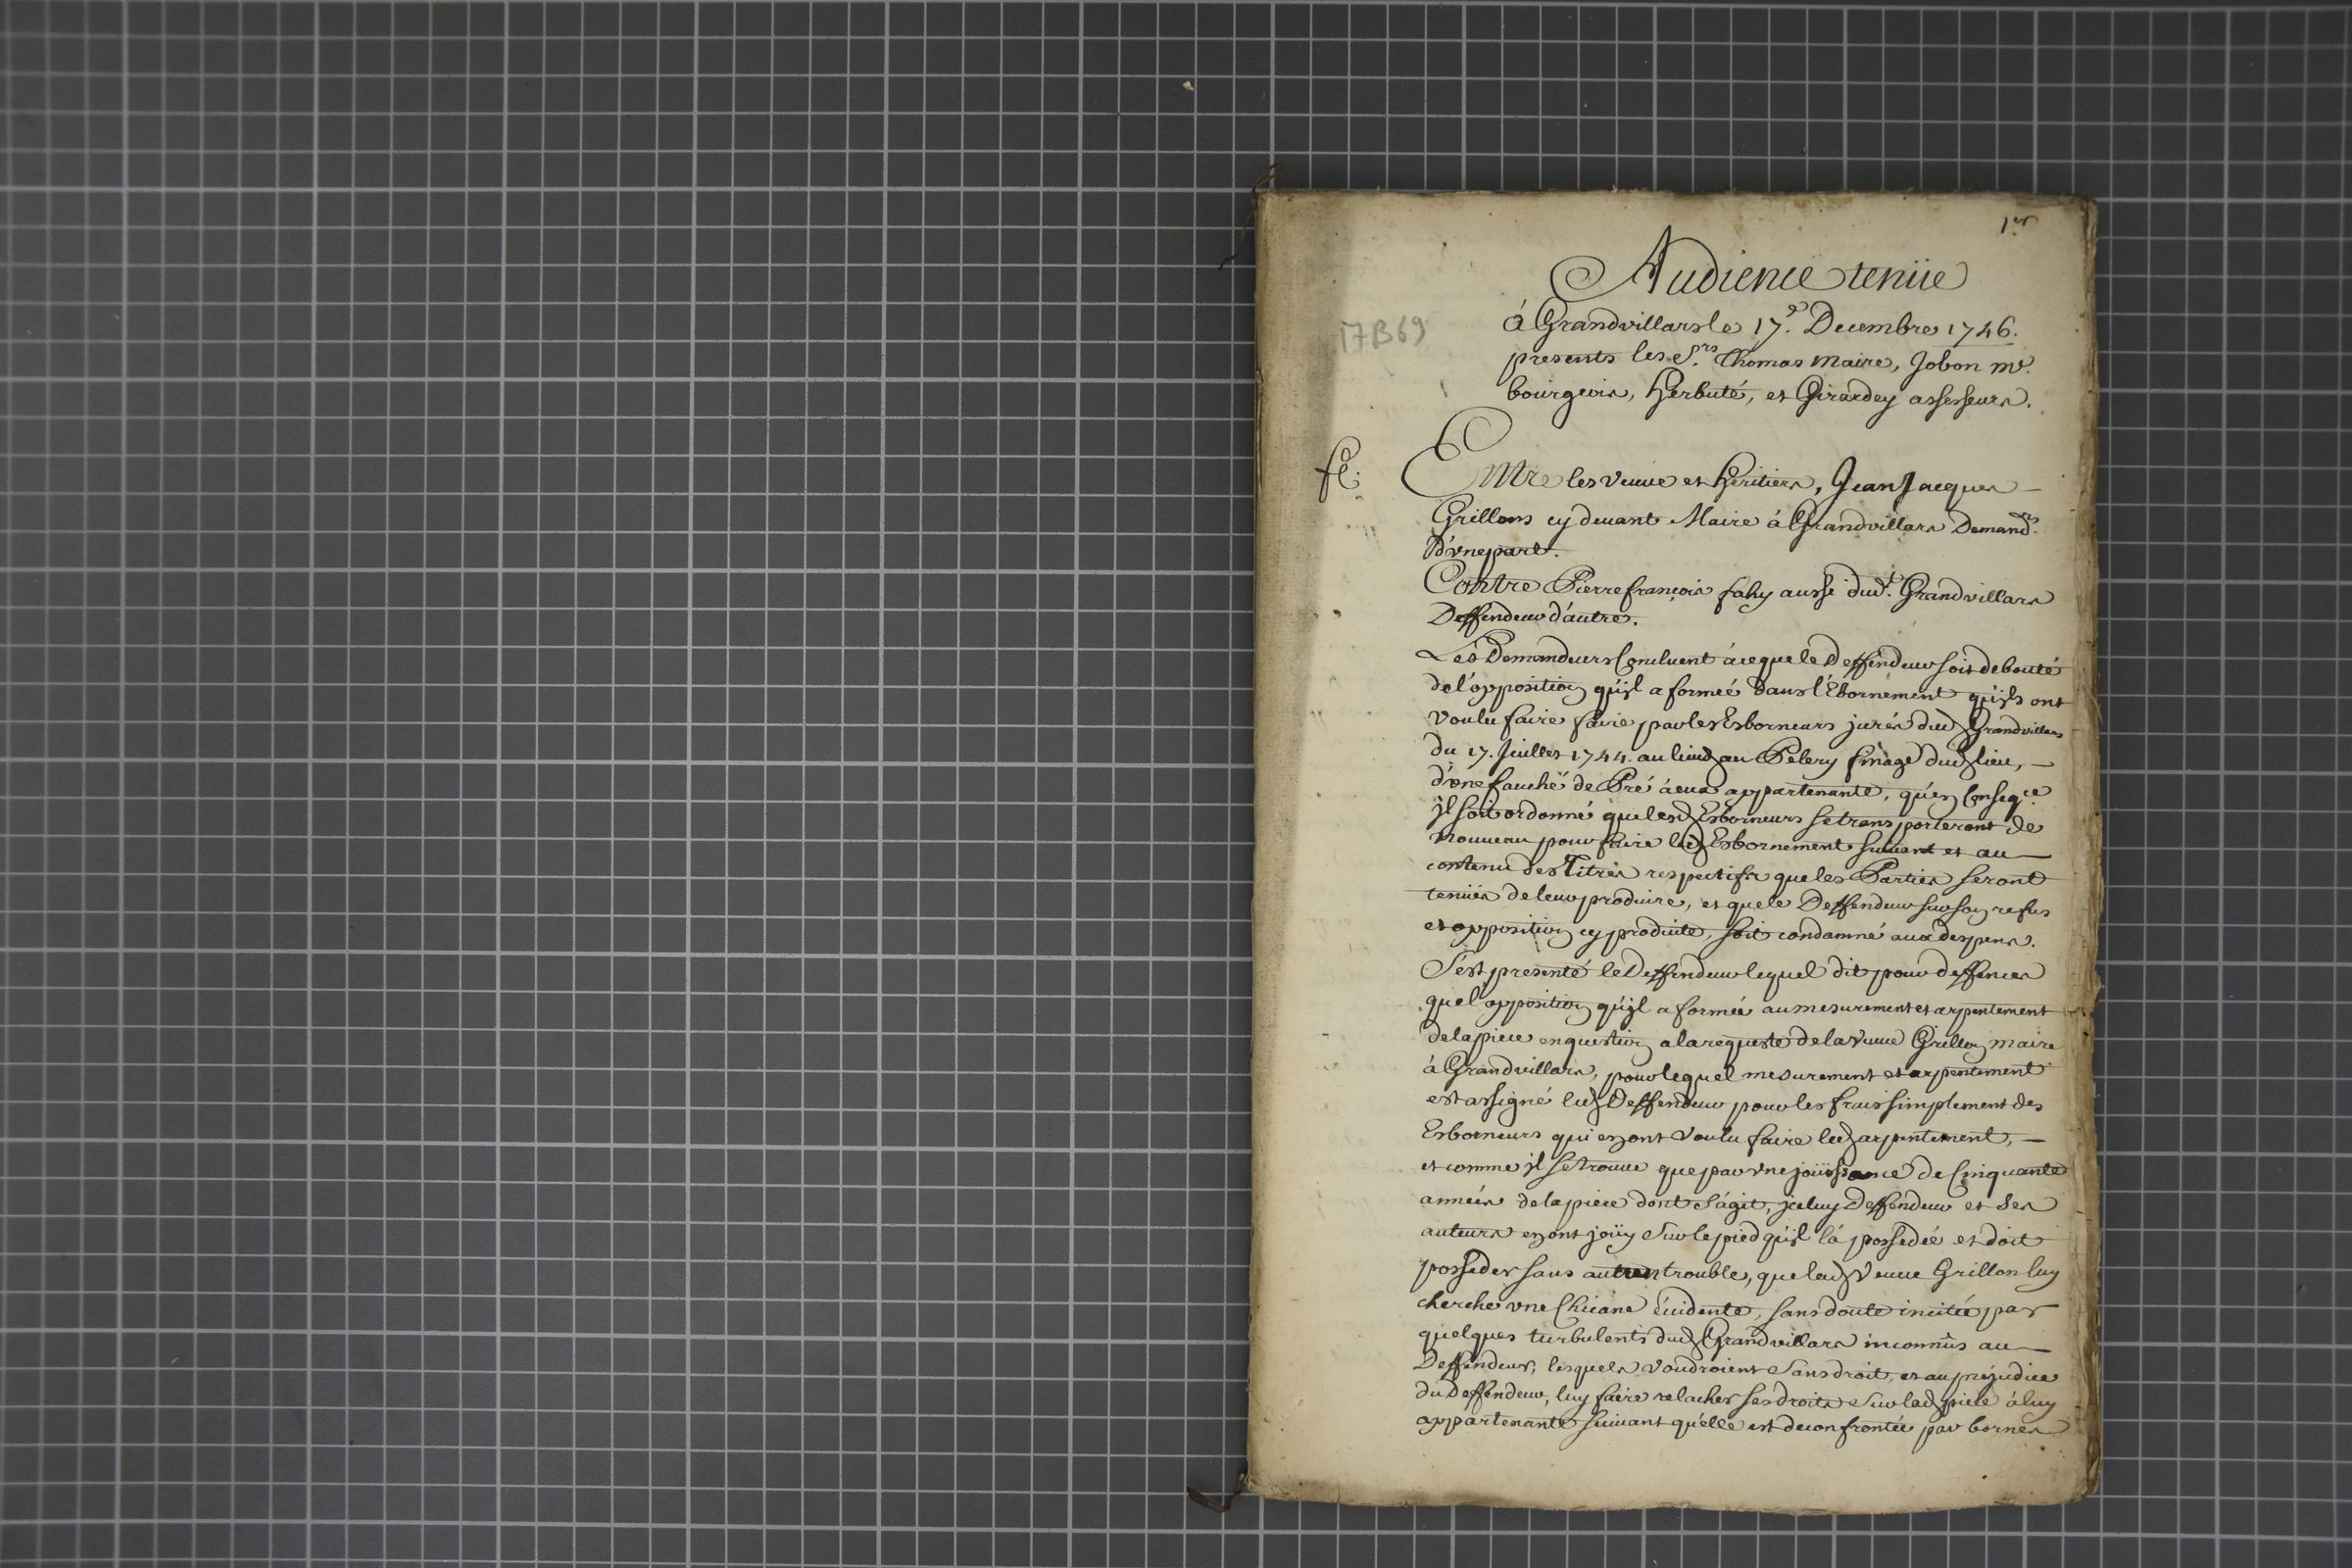 1er
Audience tenüe
17B69
à Grandvillars le 17.e Decembre 1746.
presents les Srs. Thomas Maire, Jobon me.
bourgeois, Herbuté, et Girardey assesseurs.
Entre les veuve et heritiers, Jean Jacques —
Grillons cy devant Maire à Grandvillars Demandrs.
d'vne part.
Contre Pierre françois fahy aussi dud.t Grandvillars
Deffendeur d'autre.
Les Demandeurs Concluent à ce que le Deffendeur soit debouté
de l'opposition qu'jl a formeé dans l'Ebornement qu'jls ont
voulu faire faire par les Esborneurs jurés dud Grandvillars
du 17. Juillet 1744. au lieud au Pelery finage dud lieu, —
d'vne fauché de Pré à eux appartenante, qu'en Conseqce.
jl soit ordonné que lesd Esborneurs se transporteront de
nouveau pour faire led Esbornement suivant et au —
contenu des Titres respectifs que les Parties seront
tenües de leur produire, et que le Deffendeur sur son refus
et opposition cy produite, soit condamné aux despens.
S'est presenté le Deffendeur lequel dit pour deffences
que l'opposition qu'jl a formée au mesurement et arpentement
de la piece en question a la requeste de la veuve Grillon maire
à Grandvillars, pour lequel mesurement et arpentement
est assigné led Deffendeur pour les frais simplement des
Esborneurs qui en ont voulu faire led arpentement, —
et comme jl se trouve que par vne joüissance de Cinquante
années de la piece dont s'agit, jceluy Deffendeur et ses
auteurs en ont joüy sur le pied qu'jl l'a possedée et doit
posseder sans autres trouble, que lad Veuve Grillon luy
cherche vne Chicane évidente, sans doute incitée par
quelques turbulents dud Grandvillars inconnûs au —
Deffendeur, lesquels voudroient sans droit, et au préjudice
du Deffendeur, luy faire relacher ses droits sur lad piece à luy
appartenante suivant qu'elle est deconfrontée par bornes